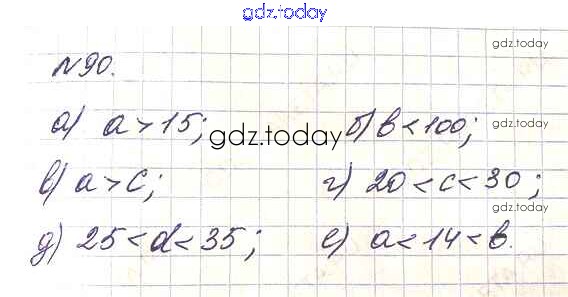 gdz.today
gdz.today
№90.
а) a > 15; б) b < 100;
gdz.today
gdz.today
в) a > c; г) 20 < c < 30;
gdz.today
д) 25 < d < 35; е) a < 14 < b.
gdz.today